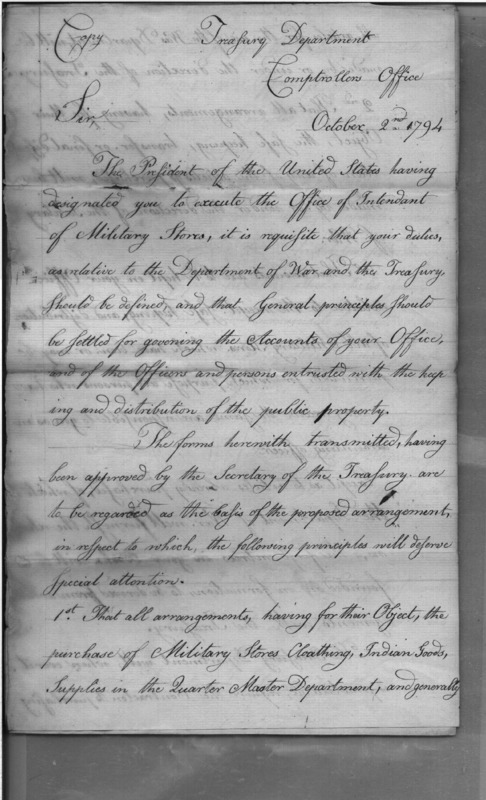 Copy
Treasury Department
Comptrollers Office
October 2nd 1794
Sir,
The President of the United States having
designated you to execute the Office of Intendant
of Military Stores, it is requisite that your duties,
as relative to the Department of War and the Treasury,
should be defined, and that General principles should
be settled for govening the Accounts of your Office,
and of the Officers and persons entrusted with the keep
ing and distribution of the public property.
The forms herewith transmitted, having
been approved by the Secretary of the Treasury are
to be regarded as the basis of the proposed arrangement,
in respect to which, the following principles will deserve
special attention.
1st. That all arrangements, having for their Object, the
purchase of Military Stores Cloathing, Indian Goods,
Supplies in the Quarter Master Department, and generally